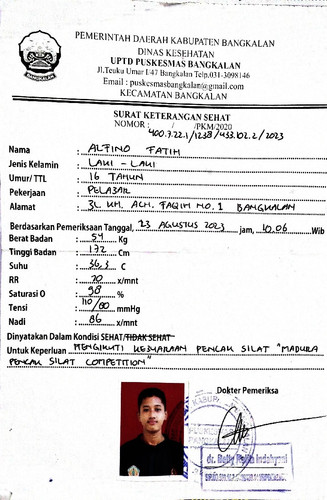 PEMERINTAH DAERAH KABUPATEN BANGKALAN
DINAS KESEHATAN
UPTD PUSKESMAS BANGKALAN
Jl.Teuku Umar 1/47 Bangkalan Telp,031-3098146
Email : puskesmasbangkalan@gmail.com
KECAMATAN BANGKALAN
BANGKALAN
SURAT KETERANGAN SEHAT
NOMOR : / /PKM/2020
400.7.22.1/1238/433.102.2/2023
Nama : ALFINO FATIH
Jenis Kelamin : LAKI - LAKI
Umur/TTL : 16 TAHUN
Pekerjaan : PELAJAR
Alamat : JL. KH. ACH. FAQIH NO. 1 BANGKALAN
Berdasarkan Pemeriksaan Tanggal, 23 AGUSTUS 2023 jam, 10.06 Wib
Berat Badan : 54 Kg
Tinggi Badan : 172 Cm
Suhu : 36,3 C
RR : 20 x/mnt
Saturasi O : 98 %
Tensi : 110/80 mmHg
Nadi : 86 x/mnt
Dinyatakan Dalam Kondisi SEHAT/TIDAK SEHAT
Untuk Keperluan MENGIKUTI KEJUARAAN PENCAK SILAT "MADURA
PENCAK SILAT COMPETITION"
Dokter Pemeriksa